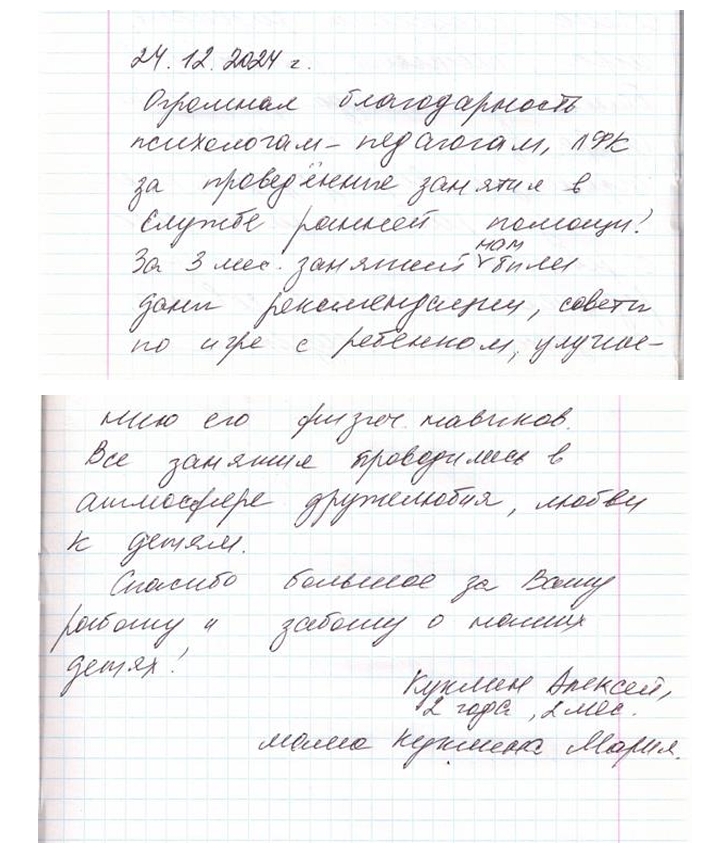 24.12.2024 г.
Огромная благодарность
психологам-педагогам, ЛФК
за проведённые занятия в
службе ранней помощи!
За 3 мес. занятий нам были
даны рекомендации, советы
по игре с ребенком, улучше-
нию его физич. навыков.
Все занятия проводились в
атмосфере дружелюбия, любви
к детям.
Спасибо большое за Вашу
работу и заботу о наших
детях!
Алексей,
2 года, 2 мес.
мама Мария.